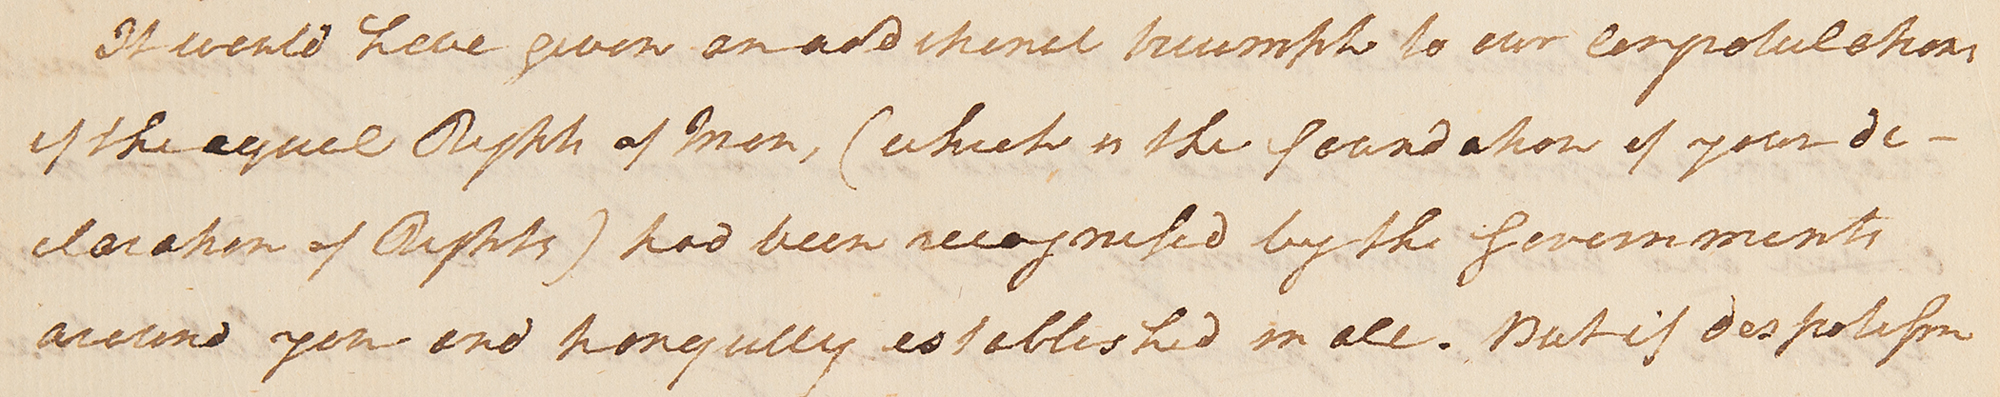 It would have given an additional triumph to our congratulations
of the equal Rights of Man, (which is the foundation of your de-
claration of Rights) had been recognised by the Governments
around you and tranquilly established in all. But if despotism